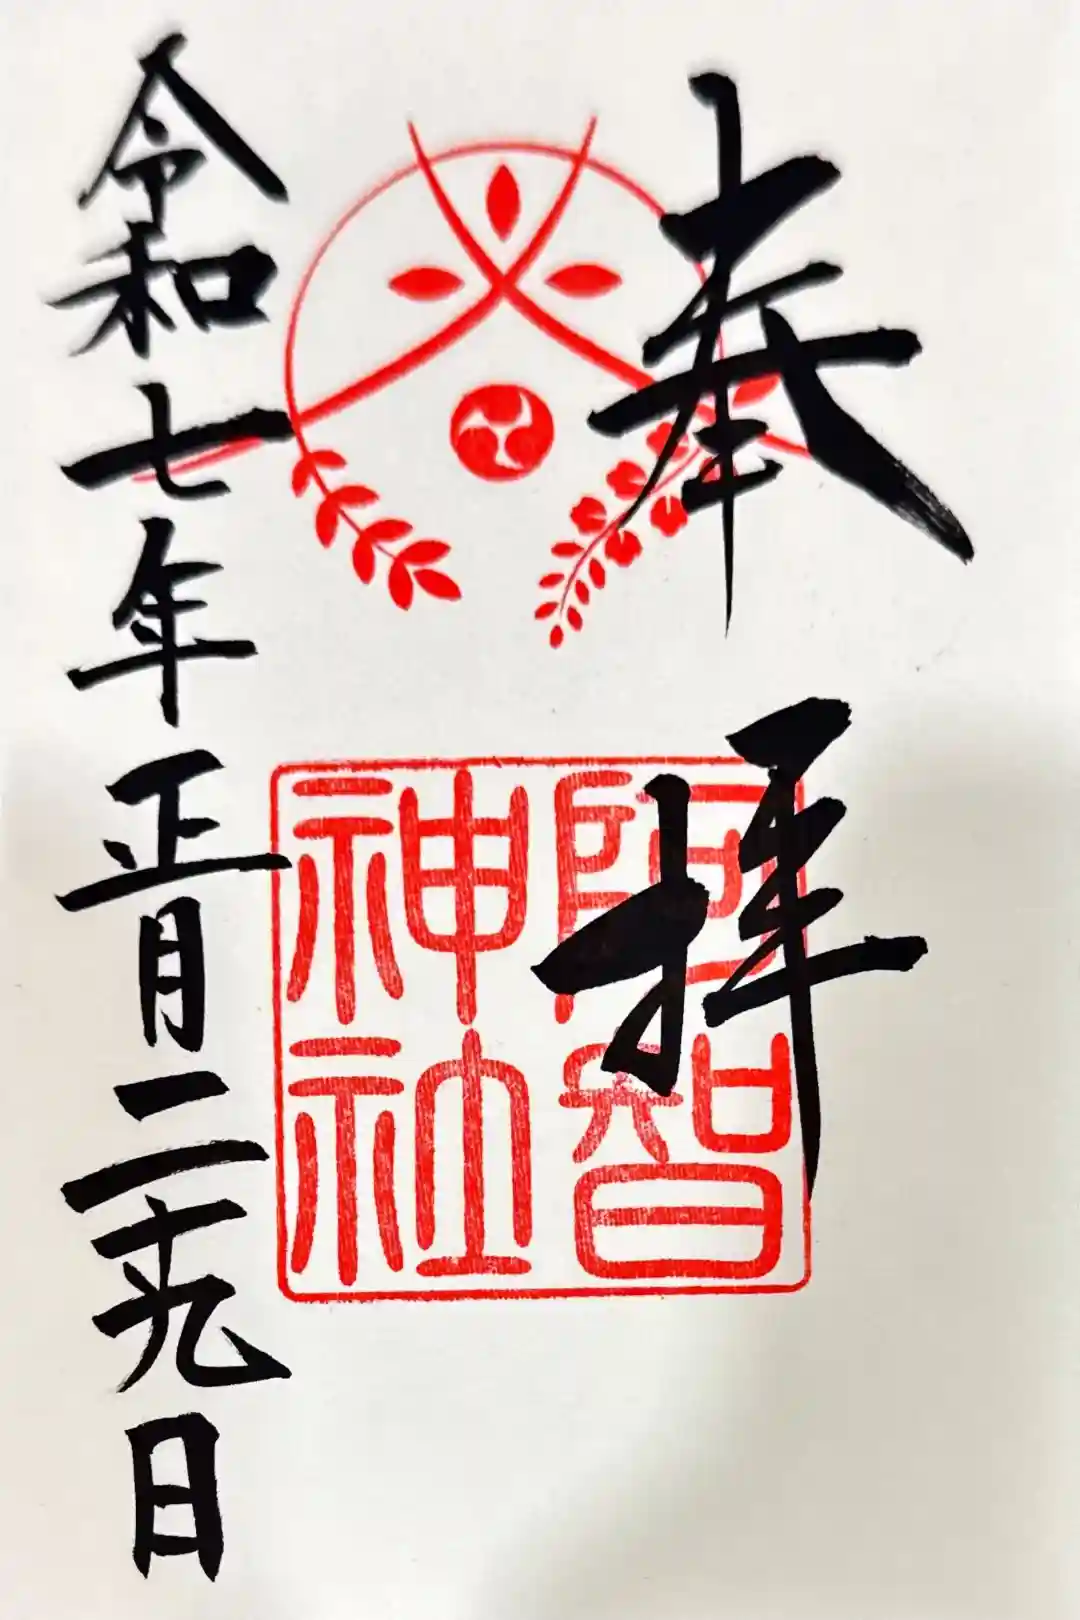 奉拝
阿智
神社
令和七年正月二十九日